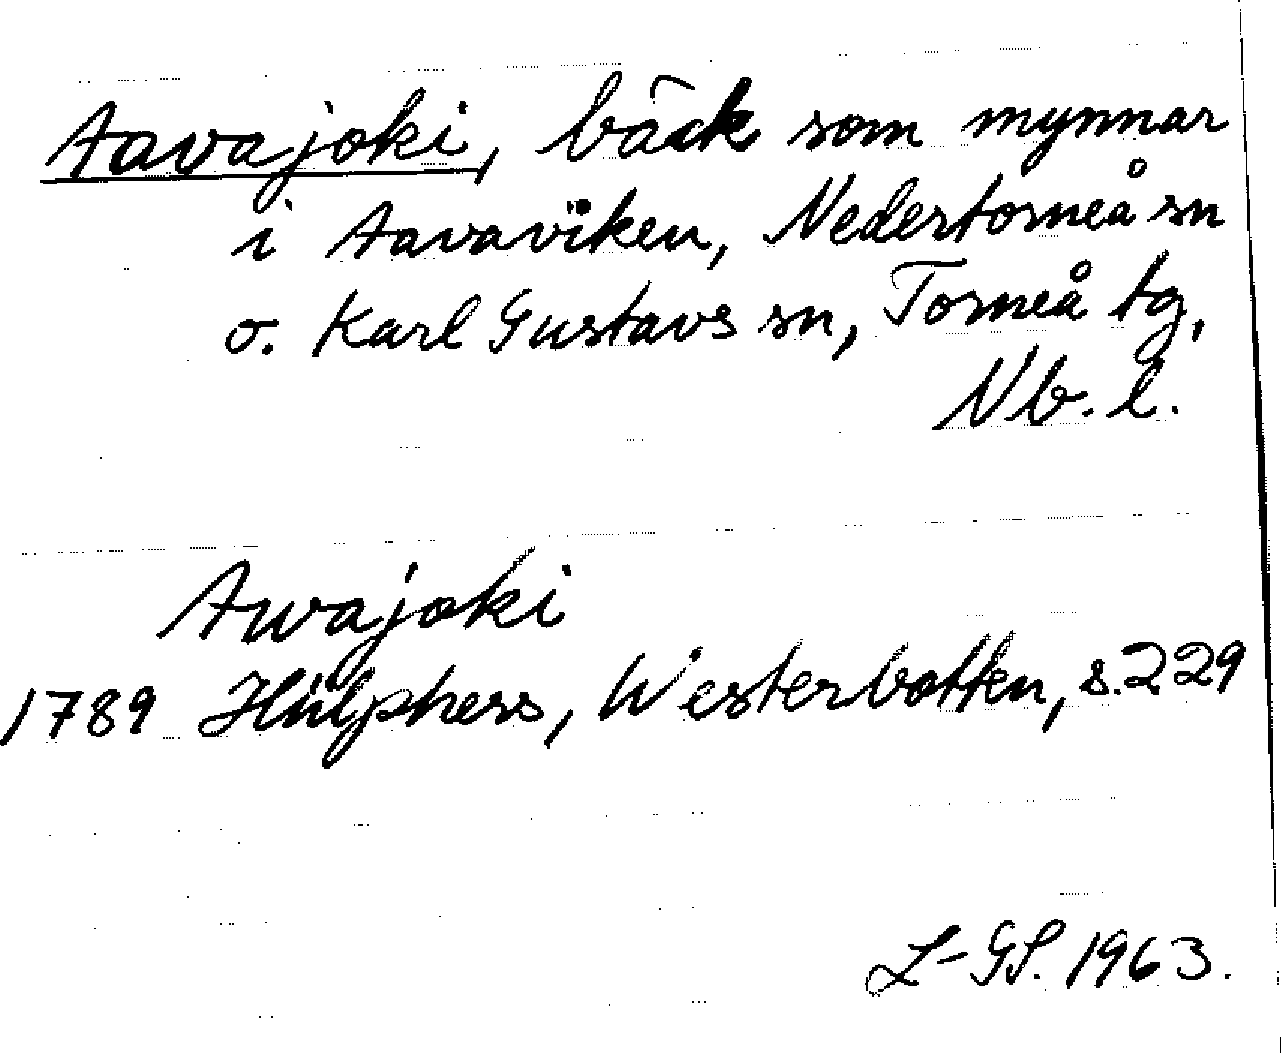 Aavajoki, bäck som mynnar
i Aavaviken, Nedertorneå sn
o. Karl Gustavs sn, Torneå tg,
Nb. l.
Awajoki
1789 Hülphers, Westerbotten, s. 229
L-GS. 1963.